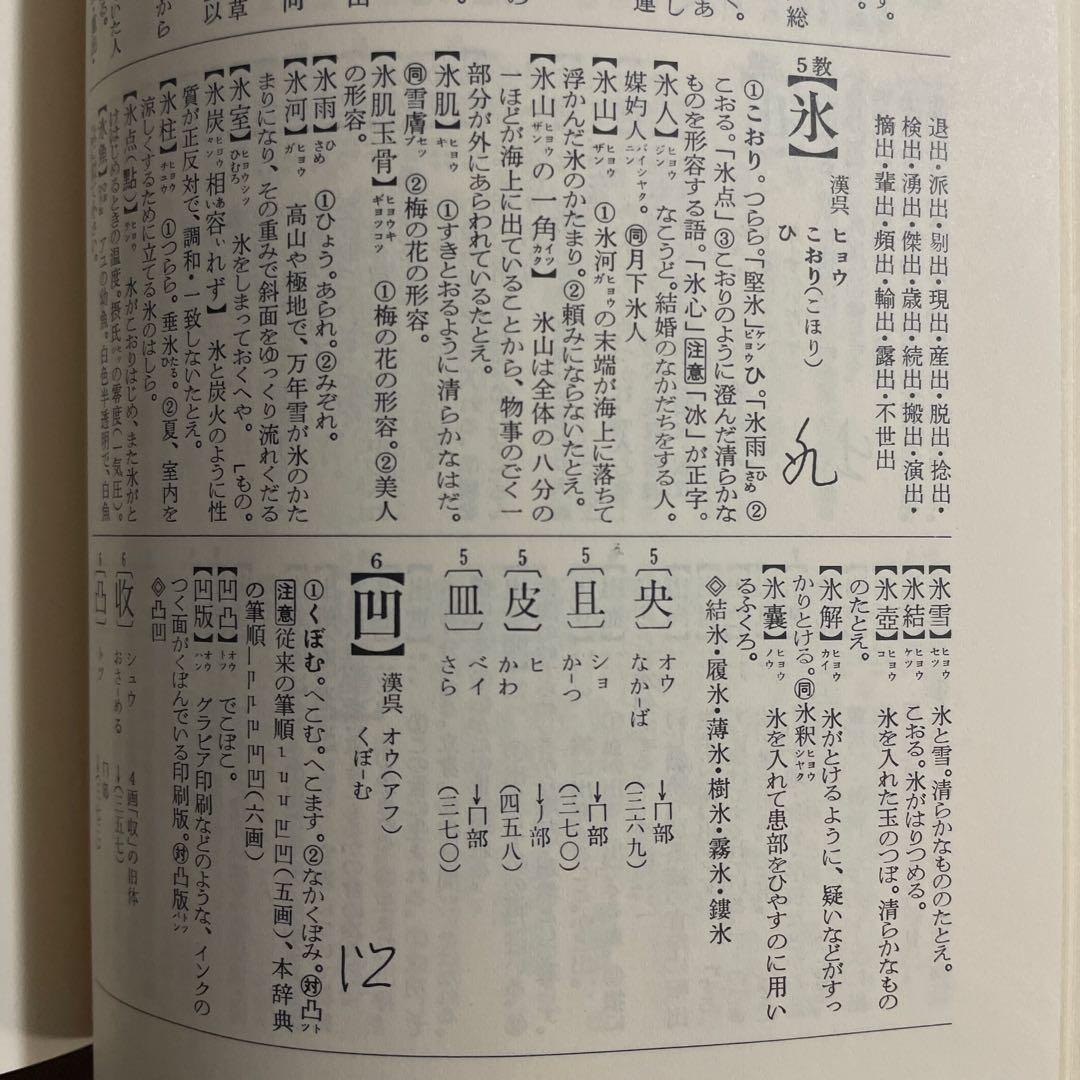 退出・派出・剔出・現出・産出・脱出・捻出・
検出・湧出・傑出・歳出・続出・搬出・演出・
摘出・輩出・頻出・輸出・露出・不世出
5教
【氷】
漢呉 ヒョウ
こおり(こほり)
ひ
①こおり。つらら。「堅氷」ケンピョウひ。「氷雨」ひさめ②
こおる。「氷点」③こおりのように澄んだ清らかな
ものを形容する語。「氷心」注意「冰」が正字。
【氷人】ヒョウジン なこうど。結婚のなかだちをする人。
媒妁人バイシャクニン。同月下氷人
【氷山】ヒョウザン ①氷河ヒョウガの末端が海上に落ちて
浮かんだ氷のかたまり。②頼みにならないたとえ。
【氷山ヒョウザンの一角イッカク】 氷山は全体の八分の
一ほどが海上に出ていることから、物事のごく一
部分が外にあらわれているたとえ。
【氷肌】ヒョウキ ①すきとおるように清らかなはだ。
同雪膚セップ ②梅の花の形容。
【氷肌玉骨】ヒョウキギョツコツ ①梅の花の形容。②美人
の形容。
【氷雨】ひさめ ①ひょう。あられ。②みぞれ。
【氷河】ヒョウガ 高山や極地で、万年雪が氷のかた
まりになり、その重みで斜面をゆっくり流れくだる
【氷室】ヒョウシツひむろ 氷をしまっておくへや。 ┗もの。
【氷炭ヒョウタン相あい容いれず】 氷と炭火のように性
質が正反対で、調和・一致しないたとえ。
【氷柱】ヒョウチュウ ①つらら。垂氷たるひ。②夏、室内を
涼しくするために立てる氷のはしら。
【氷点(點)】ヒョウテン 水がこおりはじめ、また氷がと
けはじめるときの温度。摂氏の零度(一気圧)。
【氷魚】 アユの幼魚。白色半透明で、白魚
【氷雪】ヒョウセツ 氷と雪。清らかなもののたとえ。
【氷結】ヒョウケツ こおる。氷がはりつめる。
【氷壺】ヒョウコ 氷を入れた玉のつぼ。清らかなもの
のたとえ。
【氷解】ヒョウカイ 氷がとけるように、疑いなどがすっ
かりとける。同氷釈ヒョウシャク
【氷囊】ヒョウノウ 氷を入れて患部をひやすのに用い
るふくろ。
◇結氷・履氷・薄氷・樹氷・霧氷・鏤氷
5〔央〕 オウ なか-ば →冂部(三六九)
5〔且〕 ショ か-つ →冂部(三七〇)
5〔皮〕 ヒ かわ →丿部(四五八)
5〔皿〕 ベイ さら →冂部(三七〇)
6
【凹】
漢呉 オウ(アフ)
くぼ-む
①くぼむ。へこむ。へこます。②なかくぼみ。対凸トツ
注意従来の筆順 凹(五画)、本辞典
の筆順 凹(六画)
【凹凸】オウトツ でこぼこ。
【凹版】オウハン グラビア印刷などのような、インクの
つく面がくぼんでいる印刷版。対凸版トツパン
◇凸凹
6〔收〕 シュウ おさ-める 4画「収」の旧体 →(三五七)
6〔凸〕 トツ